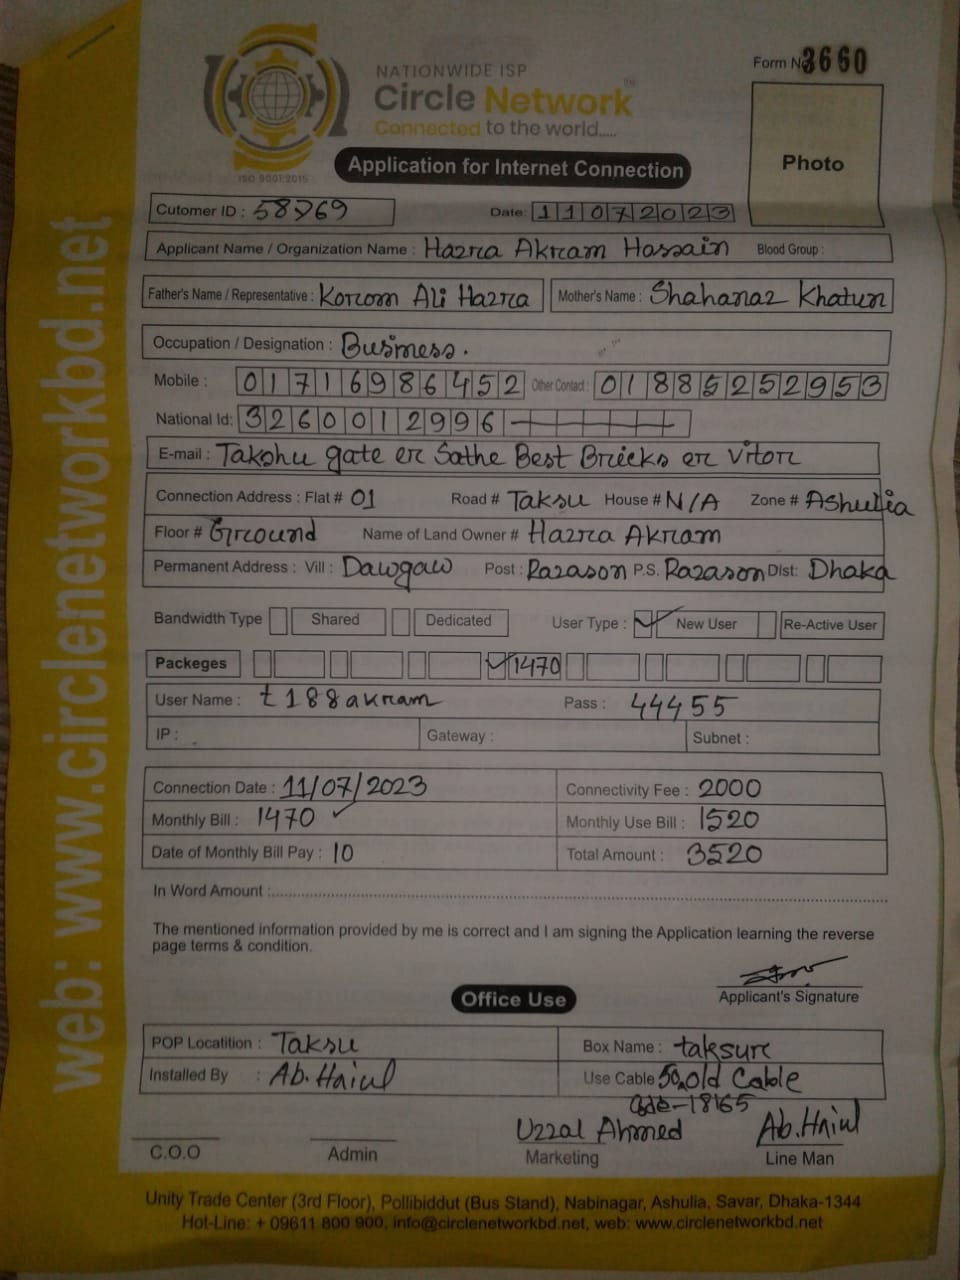 Form No 3660
NATIONWIDE ISP
Circle Network™
Connected to the world.....
ISO 9001:2015
Application for Internet Connection
Photo
Cutomer ID : 58769
Date: 11072023
Applicant Name / Organization Name : Hazra Akram Hossain Blood Group :
Father's Name / Representative : Korom Ali Hazra
Mother's Name : Shahanaz Khatun
Occupation / Designation : Business.
Mobile : 01716986452 Other Contact : 01885252953
National Id: 3260012996
E-mail : Takshu gate er Sathe Best Bricks er vitor
Connection Address : Flat # 01 Road # Taksu House # N/A Zone # Ashulia
Floor # Ground Name of Land Owner # Hazra Akram
Permanent Address : Vill : Dawgaw Post : Razason P.S. Razason Dist: Dhaka
Bandwidth Type Shared Dedicated User Type : New User Re-Active User
Packeges 1470
User Name : t188akram Pass : 44455
IP : Gateway : Subnet :
Connection Date : 11/07/2023 Connectivity Fee : 2000
Monthly Bill : 1470 Monthly Use Bill : 1520
Date of Monthly Bill Pay : 10 Total Amount : 3520
In Word Amount :
The mentioned information provided by me is correct and I am signing the Application learning the reverse
page terms & condition.
Applicant's Signature
Office Use
POP Locatition : Taksu Box Name : taksure
Installed By : Ab. Haiul Use Cable old Cable
Code-18165
Uzzal Ahmed Ab. Haiul
C.O.O Admin Marketing Line Man
Unity Trade Center (3rd Floor), Pollibiddut (Bus Stand), Nabinagar, Ashulia, Savar, Dhaka-1344
Hot-Line: + 09611 800 900, info@circlenetworkbd.net, web: www.circlenetworkbd.net
web: www.circlenetworkbd.net